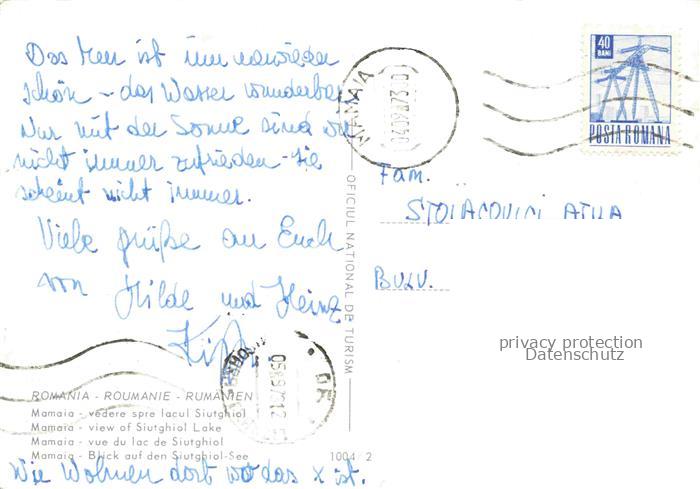 Das Meer ist immer wieder
schön - das Wasser wunderbar
Nur mit der Sonne sind wir
nicht immer zufrieden - sie
scheint nicht immer.
Viele Grüße an Euch
von Hilde und Heinz
MAMAIA
04.09.73
40
BANI
POSTA ROMANA
Fam.
STOIACOVICI ATILA
BULV.
OFICIUL NATIONAL DE TURISM
privacy protection
Datenschutz
ROMANIA - ROUMANIE - RUMÄNIEN
Mamaia - vedere spre lacul Siutghiol
Mamaia - view of Siutghiol Lake
Mamaia - vue du lac de Siutghiol
Mamaia - Blick auf den Siutghiol-See
1004 2
Wir Wohnen dort wo das x ist.